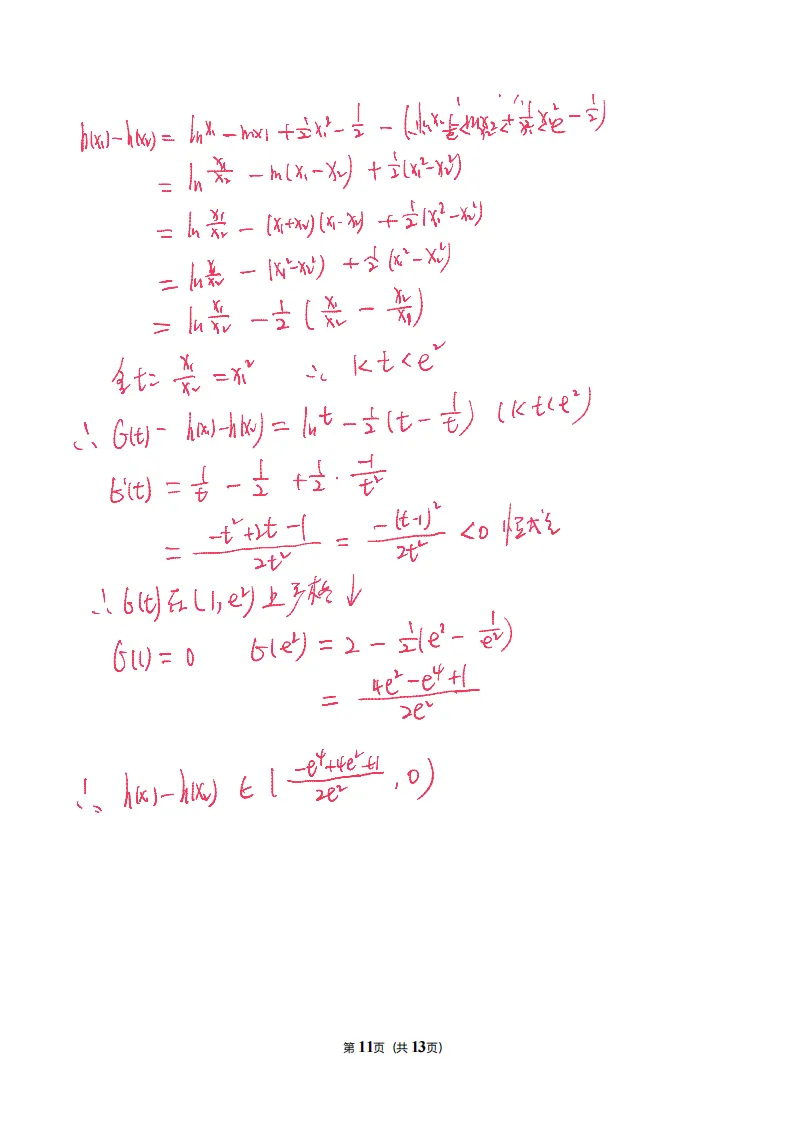 h(x₁)-h(x₂) = ln x₁ - mx₁ + ½x₁² - ½ - (ln x₂ - mx₂ + ½x₂² - ½)
= ln x₁/x₂ - m(x₁-x₂) + ½(x₁²-x₂²)
= ln x₁/x₂ - (x₁+x₂)(x₁-x₂) + ½(x₁²-x₂²)
= ln x₁/x₂ - (x₁²-x₂²) + ½(x₁²-x₂²)
= ln x₁/x₂ - ½(x₁/x₂ - x₂/x₁)
令t = x₁/x₂ = x₁² ∴ 1<t<e²
∴ G(t) = h(x₁)-h(x₂) = ln t - ½(t - 1/t) (1<t<e²)
G'(t) = 1/t - 1/2 + 1/2 · -1/t²
= (-t²+2t-1)/2t² = -(t-1)²/2t² <0 恒成立
∴ G(t)在(1,e²)上严格↓
G(1)=0 G(e²) = 2 - ½(e² - 1/e²)
= (4e²-e⁴+1)/2e²
∴ h(x₁)-h(x₂) ∈ ((-e⁴+4e²+1)/2e², 0)
第 11页 (共 13页)